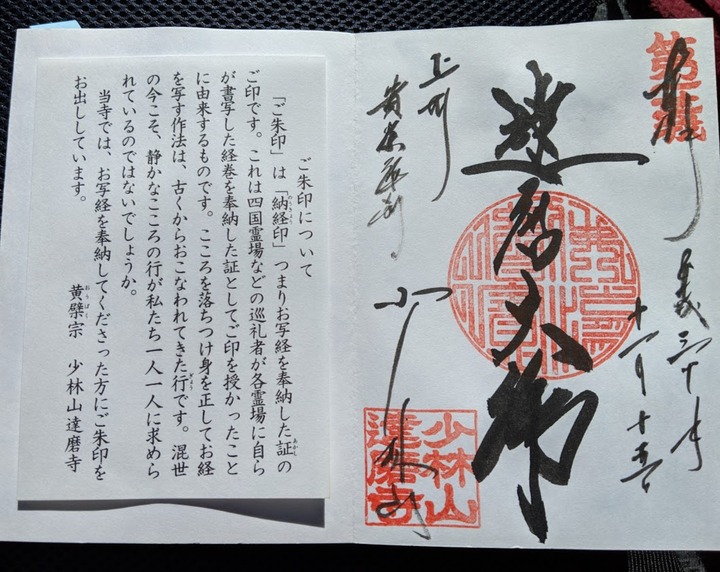 奉拝
第一義
平成三十年
十一月十五日
達磨大師
上州
少林山
少林山
達磨寺
ご朱印について
「ご朱印」は「納経印」つまりお写経を奉納した証の
ご印です。これは四国霊場などの巡礼者が各霊場に自ら
が書写した経巻を奉納した証としてご印を授かったこと
に由来するものです。こころを落ちつけ身を正してお経
を写す作法は、古くからおこなわれてきた行です。混世
の今こそ、静かなこころの行が私たち一人一人に求めら
れているのではないでしょうか。
当寺では、お写経を奉納してくださった方にご朱印を
お出ししています。
黄檗宗 少林山達磨寺